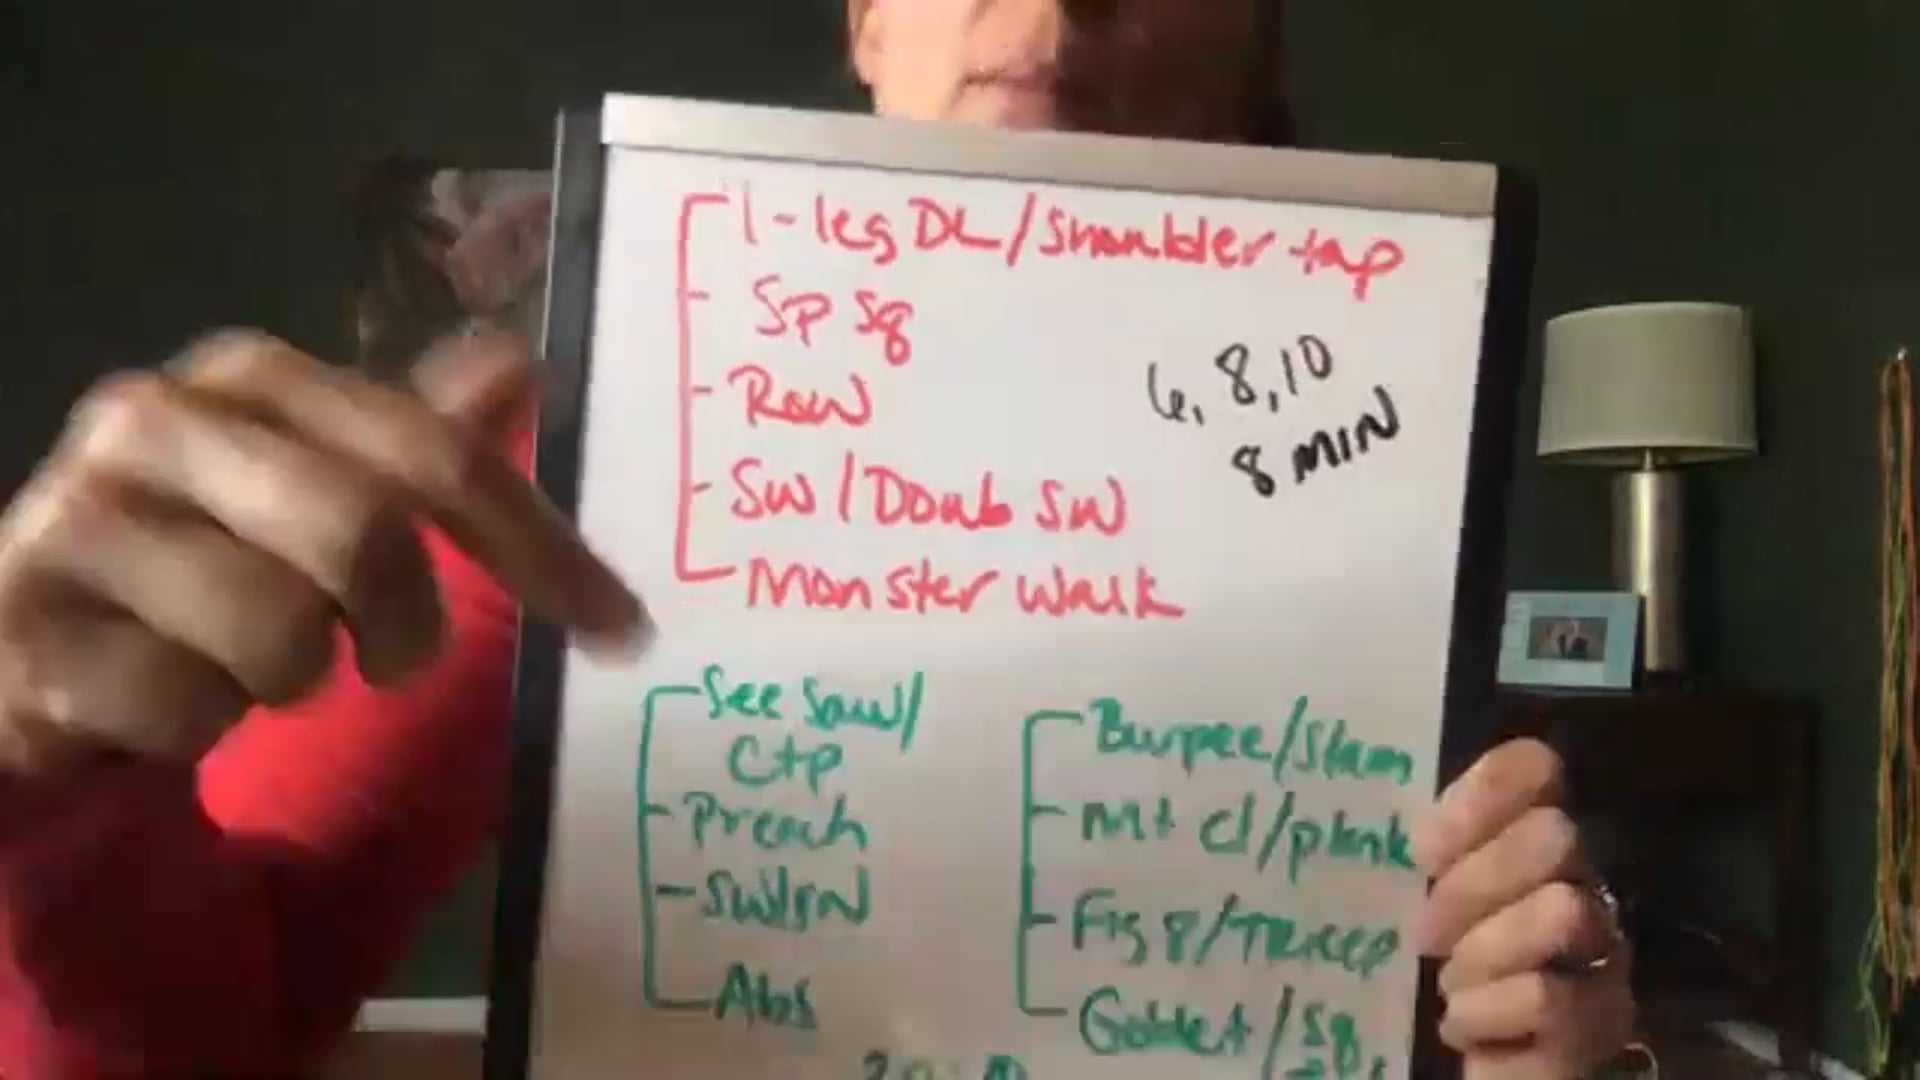 1-leg DL/Shoulder tap
Sp sq
Row
6, 8, 10
8 MIN
SW/Doub SW
Monster walk
See Saw/
Ctp
Preach
SW/SN
Abs
Burpee/Slam
Mt cl/plank
Fig 8/Tricep
Goblet/Sq